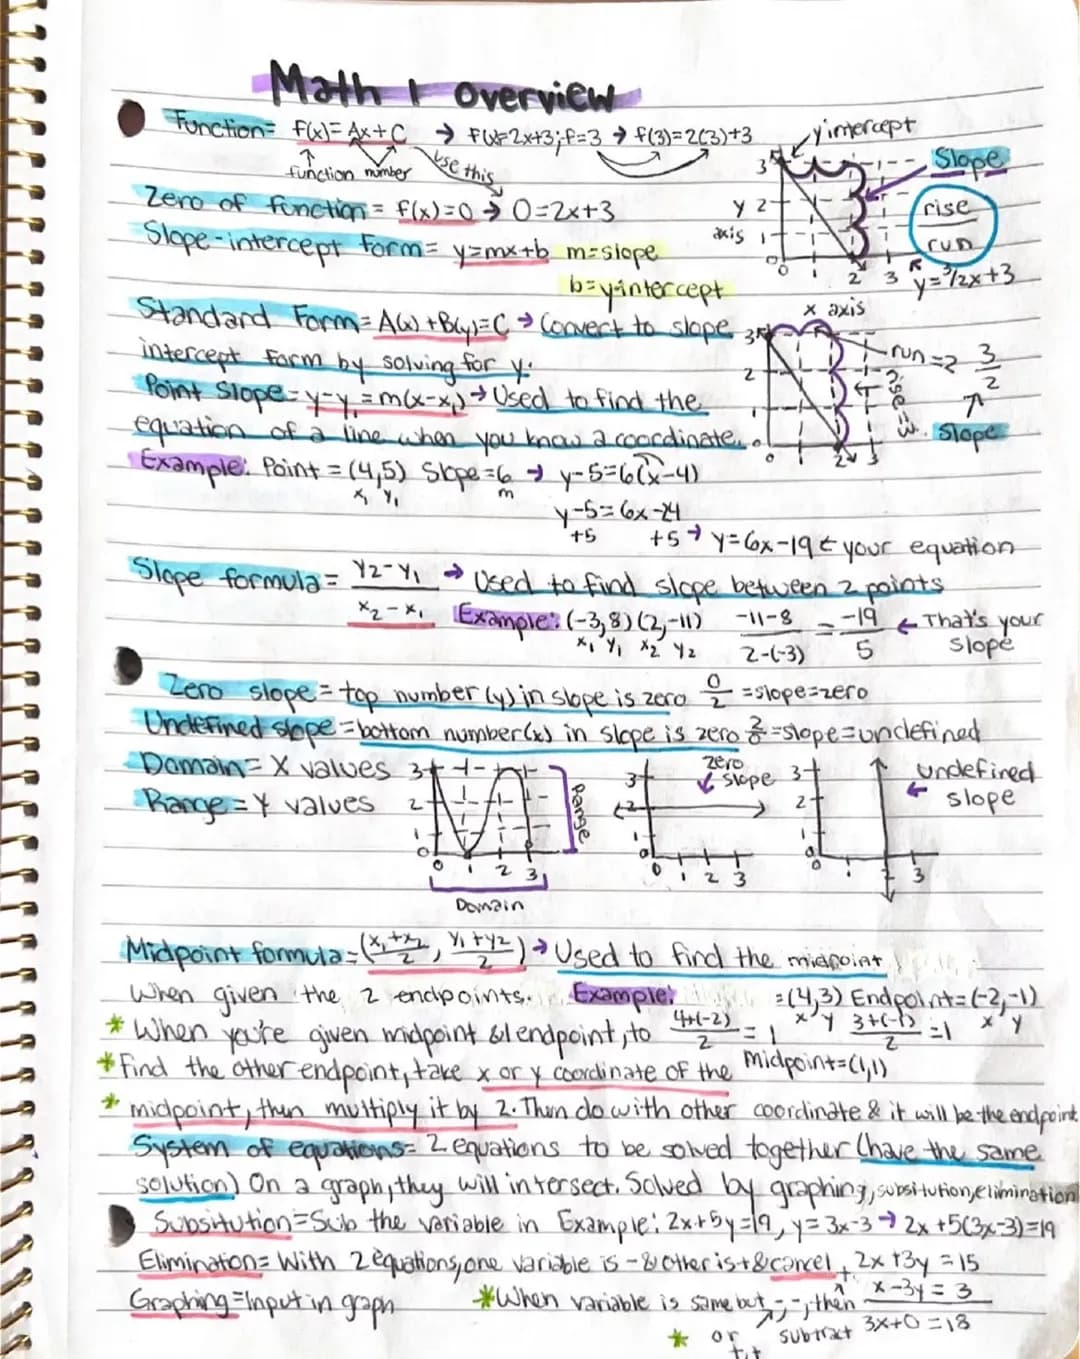 Math 1 overview
Function= f(x)=Ax+C → f(x)=2x+3; f=3 → f(3)=2(3)+3
function number use this
y intercept
Slope
rise
run
3
y 2
axis 1
0
0 1 2 3 y=3/2x+3
x axis
Zero of function = f(x)=0 → 0=2x+3
Slope-intercept form= y=mx+b m=slope
b=y-intercept
Standard Form= A(x)+B(y)=C → Convert to slope
intercept form by solving for y.
3
2
1
0
0 1 2 3
run=2 3/2
rise=3
Slope
Point Slope= y-y₁=m(x-x₁) → Used to find the
equation of a line when you know a coordinate.
Example: Point = (4,5) Slope=6 → y-5=6(x-4)
x₁ y₁ m
y-5=6x-24
+5 +5 → y=6x-19 ← your equation
Slope formula= y2-y₁ / x2-x₁ → Used to find slope between 2 points
Example: (-3,8)(2,-11) -11-8 / 2-(-3) = -19/5 ← That's your
x₁ y₁ x2 y2 slope
Zero slope= top number (y) in slope is zero 0/2 =slope=zero
Undefined slope=bottom number(x) in slope is zero 2/0=slope=undefined
Domain= X values
Range= Y values
3
2
1
0
0 1 2 3
Range
Domain
zero
slope
3
2
1
0
0 1 2 3
undefined
slope
3
2
1
0
0 1 3
Midpoint formula=(x₁+x2/2, y₁+y2/2) → Used to find the midpoint
When given the 2 endpoints. Example: =(4,3) Endpoint=(-2,-1)
x y x y
4+(-2)/2 = 1 3+(-1)/2 =1
* When you're given midpoint & 1 endpoint, to
* find the other endpoint, take x or y coordinate of the midpoint=(1,1)
* midpoint, then multiply it by 2. Then do with other coordinate & it will be the endpoint
System of equations= 2 equations to be solved together (have the same
solution) On a graph, they will intersect. Solved by graphing, subsitution, elimination
Subsitution=Sub the variable in Example: 2x+5y=19, y=3x-3 → 2x+5(3x-3)=19
Elimination= With 2 equations, one variable is - & other is + & cancel 2x+3y=15
+ x-3y=3
3x+0=18
Graphing=Input in graph *When variable is same but -,-, then
* or +,+ subtract